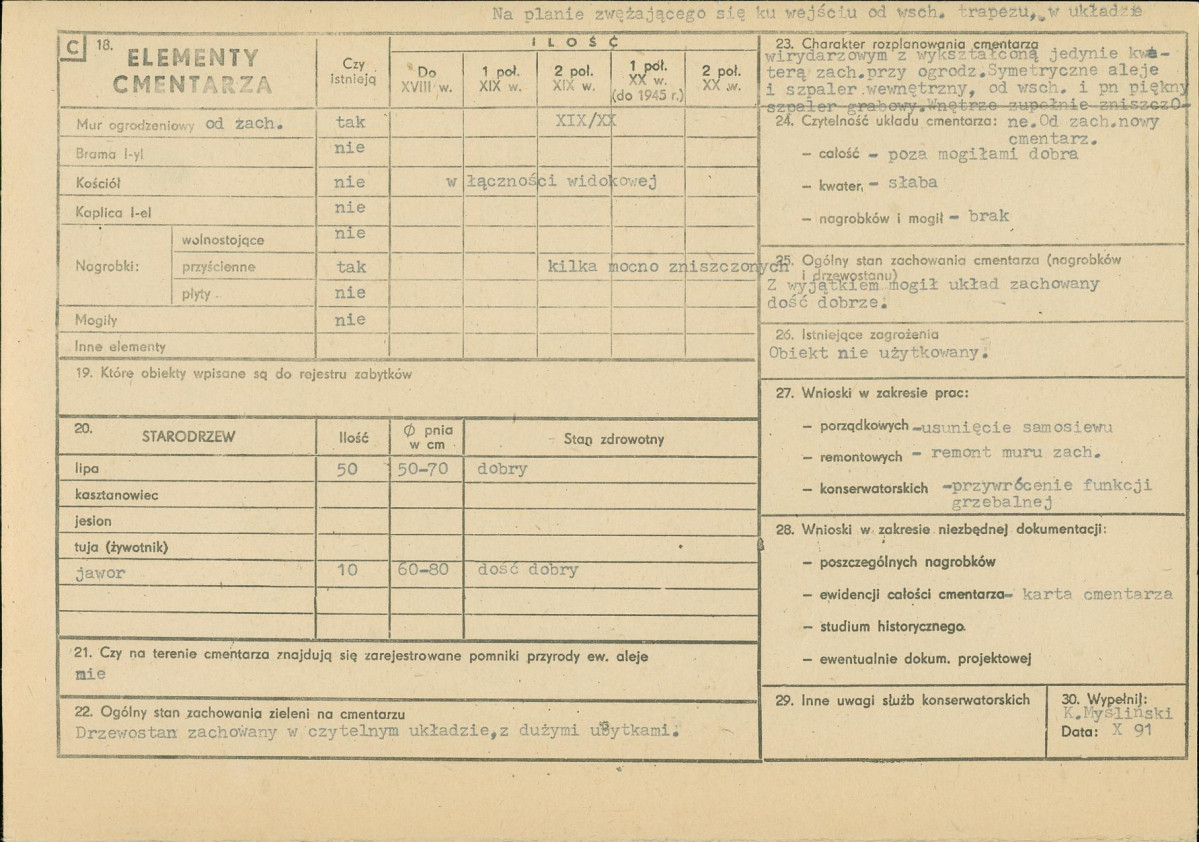 Na planie zwężającego się ku wejściu od wsch. trapezu, w układzie
C 18. ELEMENTY CMENTARZA
Czy istnieją
ILOŚĆ
Do XVIII w.
1 poł. XIX w.
2 poł. XIX w.
1 poł. XX w. (do 1945 r.)
2 poł. XX w.
Mur ogrodzeniowy od zach. tak XIX/XX
Brama l-yl nie
Kościół nie w łączności widokowej
Kaplica l-el nie
Nagrobki:
wolnostojące nie
przyścienne tak kilka mocno zniszczonych
płyty nie
Mogiły nie
Inne elementy
19. Które obiekty wpisane są do rejestru zabytków
20. STARODRZEW Ilość Ø pnia w cm Stan zdrowotny
lipa 50 50-70 dobry
kasztanowiec
jesion
tuja (żywotnik)
jawor 10 60-80 dość dobry
21. Czy na terenie cmentarza znajdują się zarejestrowane pomniki przyrody ew. aleje
nie
22. Ogólny stan zachowania zieleni na cmentarzu
Drzewostan zachowany w czytelnym układzie, z dużymi ubytkami.
23. Charakter rozplanowania cmentarza
wirydarzowym z wykształconą jedynie kwa-
terą zach.przy ogrodz.Symetryczne aleje
i szpaler wewnętrzny, od wsch. i pn piękny
szpaler grabowy.Wnętrze zupełnie zniszczo-
24. Czytelność układu cmentarza: ne.Od zach.nowy
cmentarz.
– całość - poza mogiłami dobra
– kwater, - słaba
– nagrobków i mogił - brak
25. Ogólny stan zachowania cmentarza (nagrobków
i drzewostanu)
Z wyjątkiem mogił układ zachowany
dość dobrze.
26. Istniejące zagrożenia
Obiekt nie użytkowany.
27. Wnioski w zakresie prac:
– porządkowych -usunięcie samosiewu
– remontowych - remont muru zach.
– konserwatorskich -przywrócenie funkcji
grzebalnej
28. Wnioski w zakresie niezbędnej dokumentacji:
– poszczególnych nagrobków
– ewidencji całości cmentarza- karta cmentarza
– studium historycznego
– ewentualnie dokum. projektowej
29. Inne uwagi służb konserwatorskich
30. Wypełnił:
K.Myśliński
Data: X 91